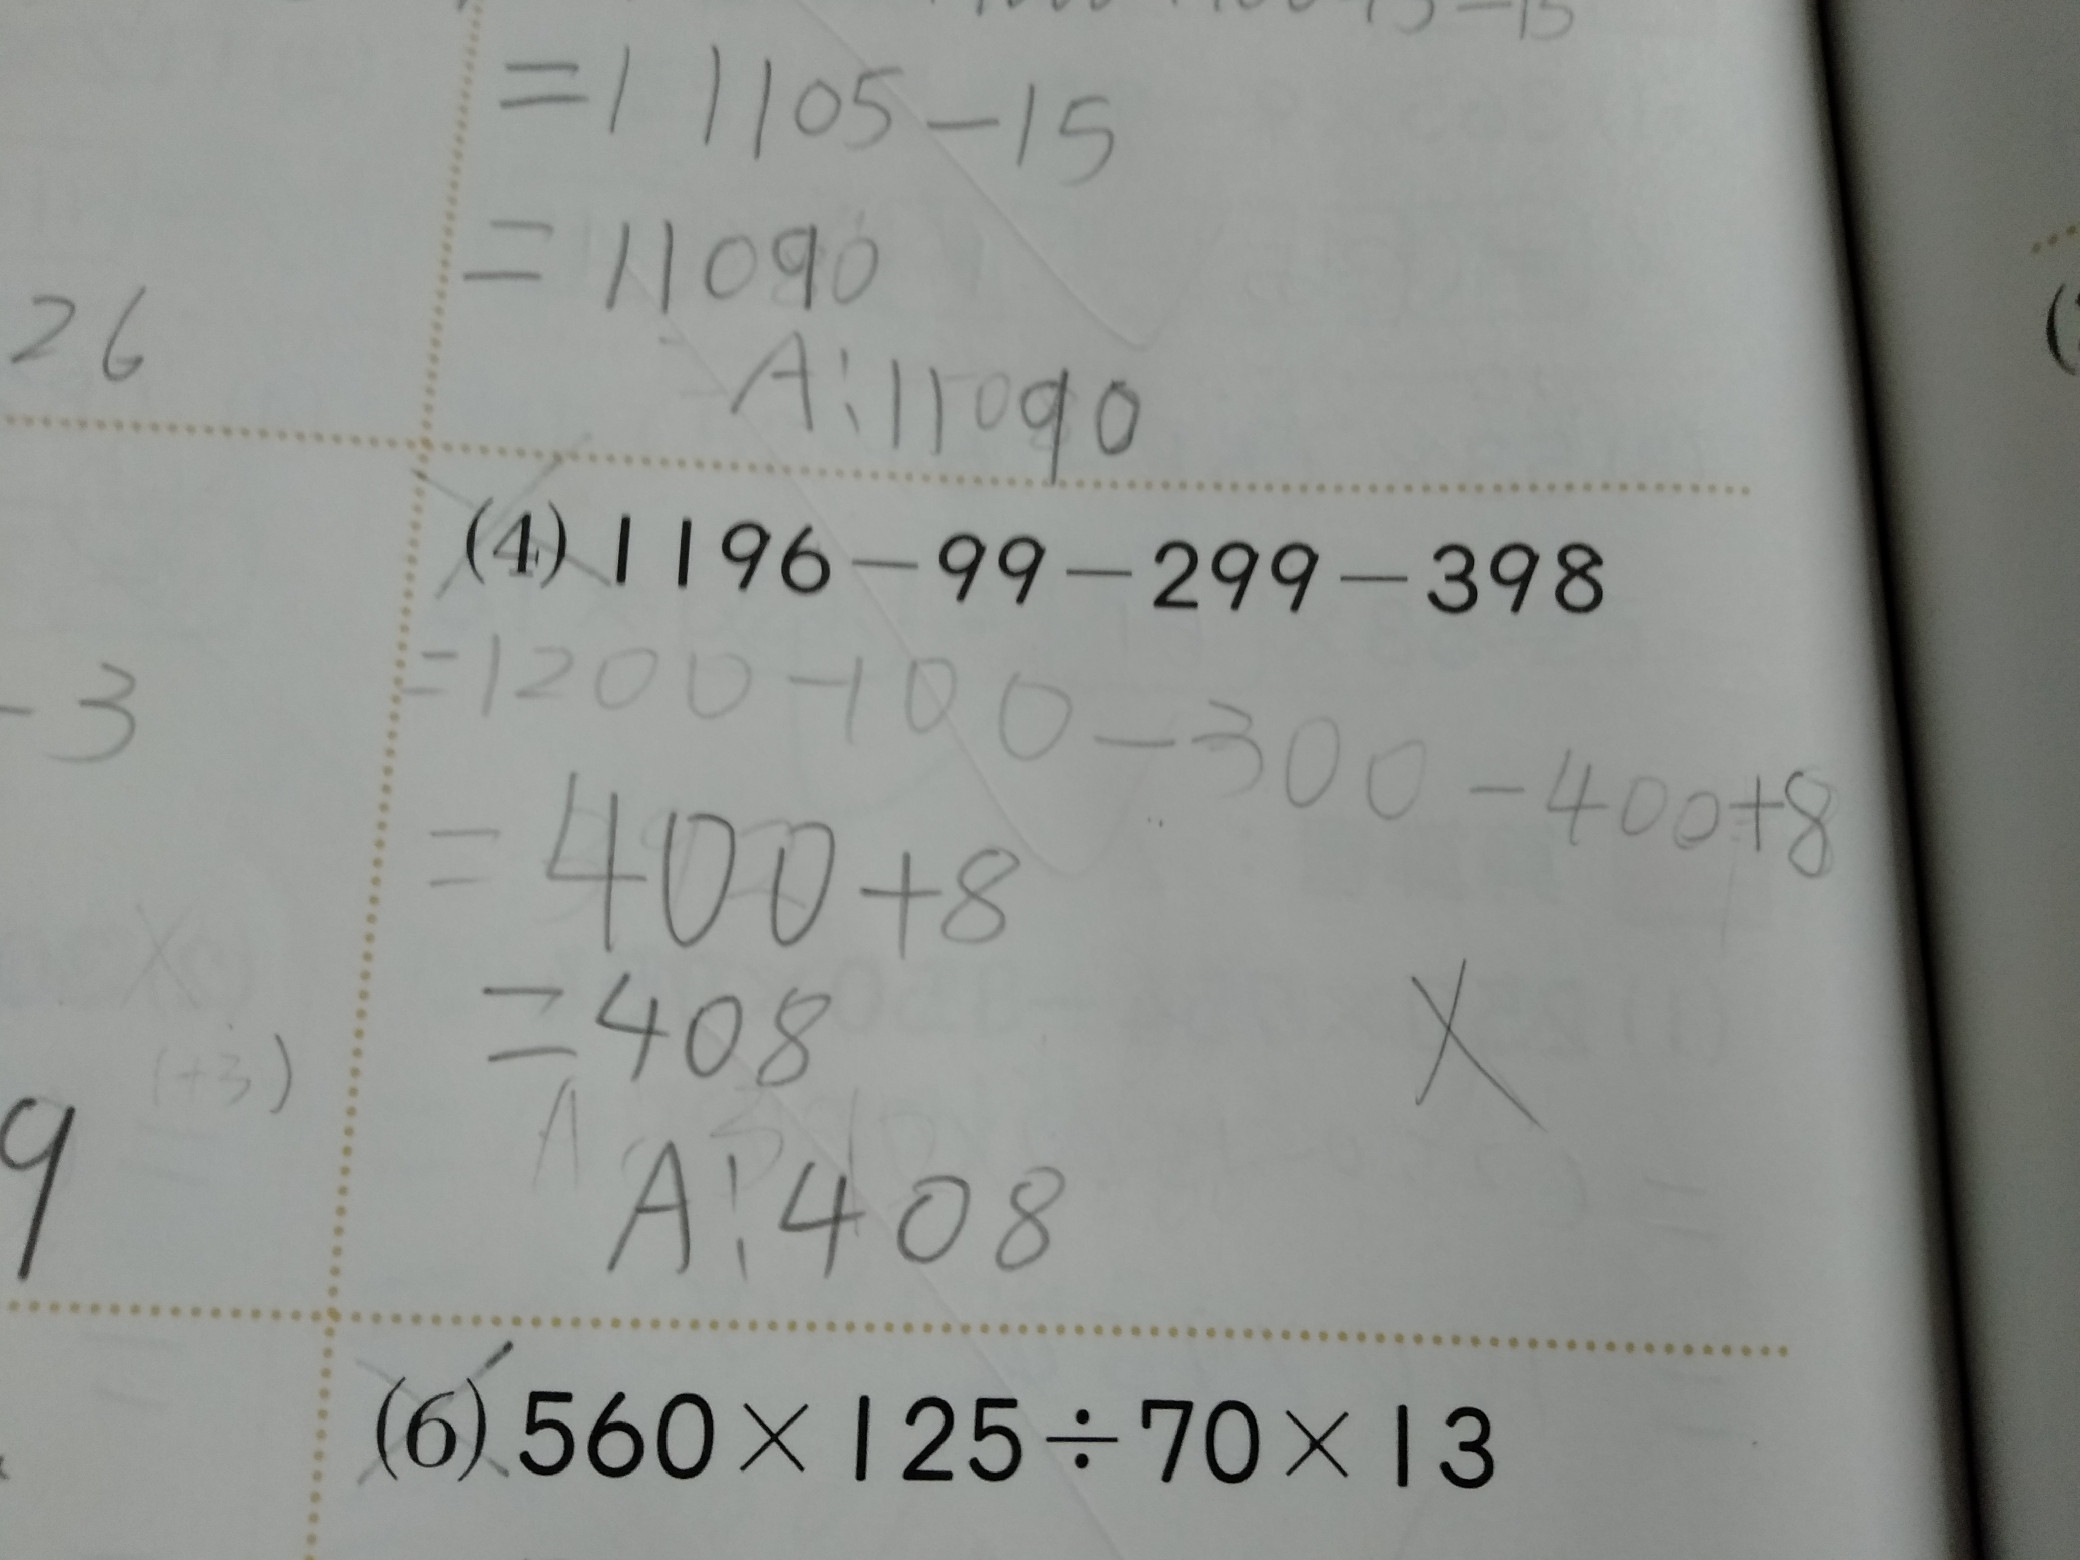 =11105-15
=11090
A:11090
26
(4) 1196-99-299-398
=1200-100-300-400+8
-3
=400+8
=408
(+3)
9
A:408
(6) 560×125÷70×13